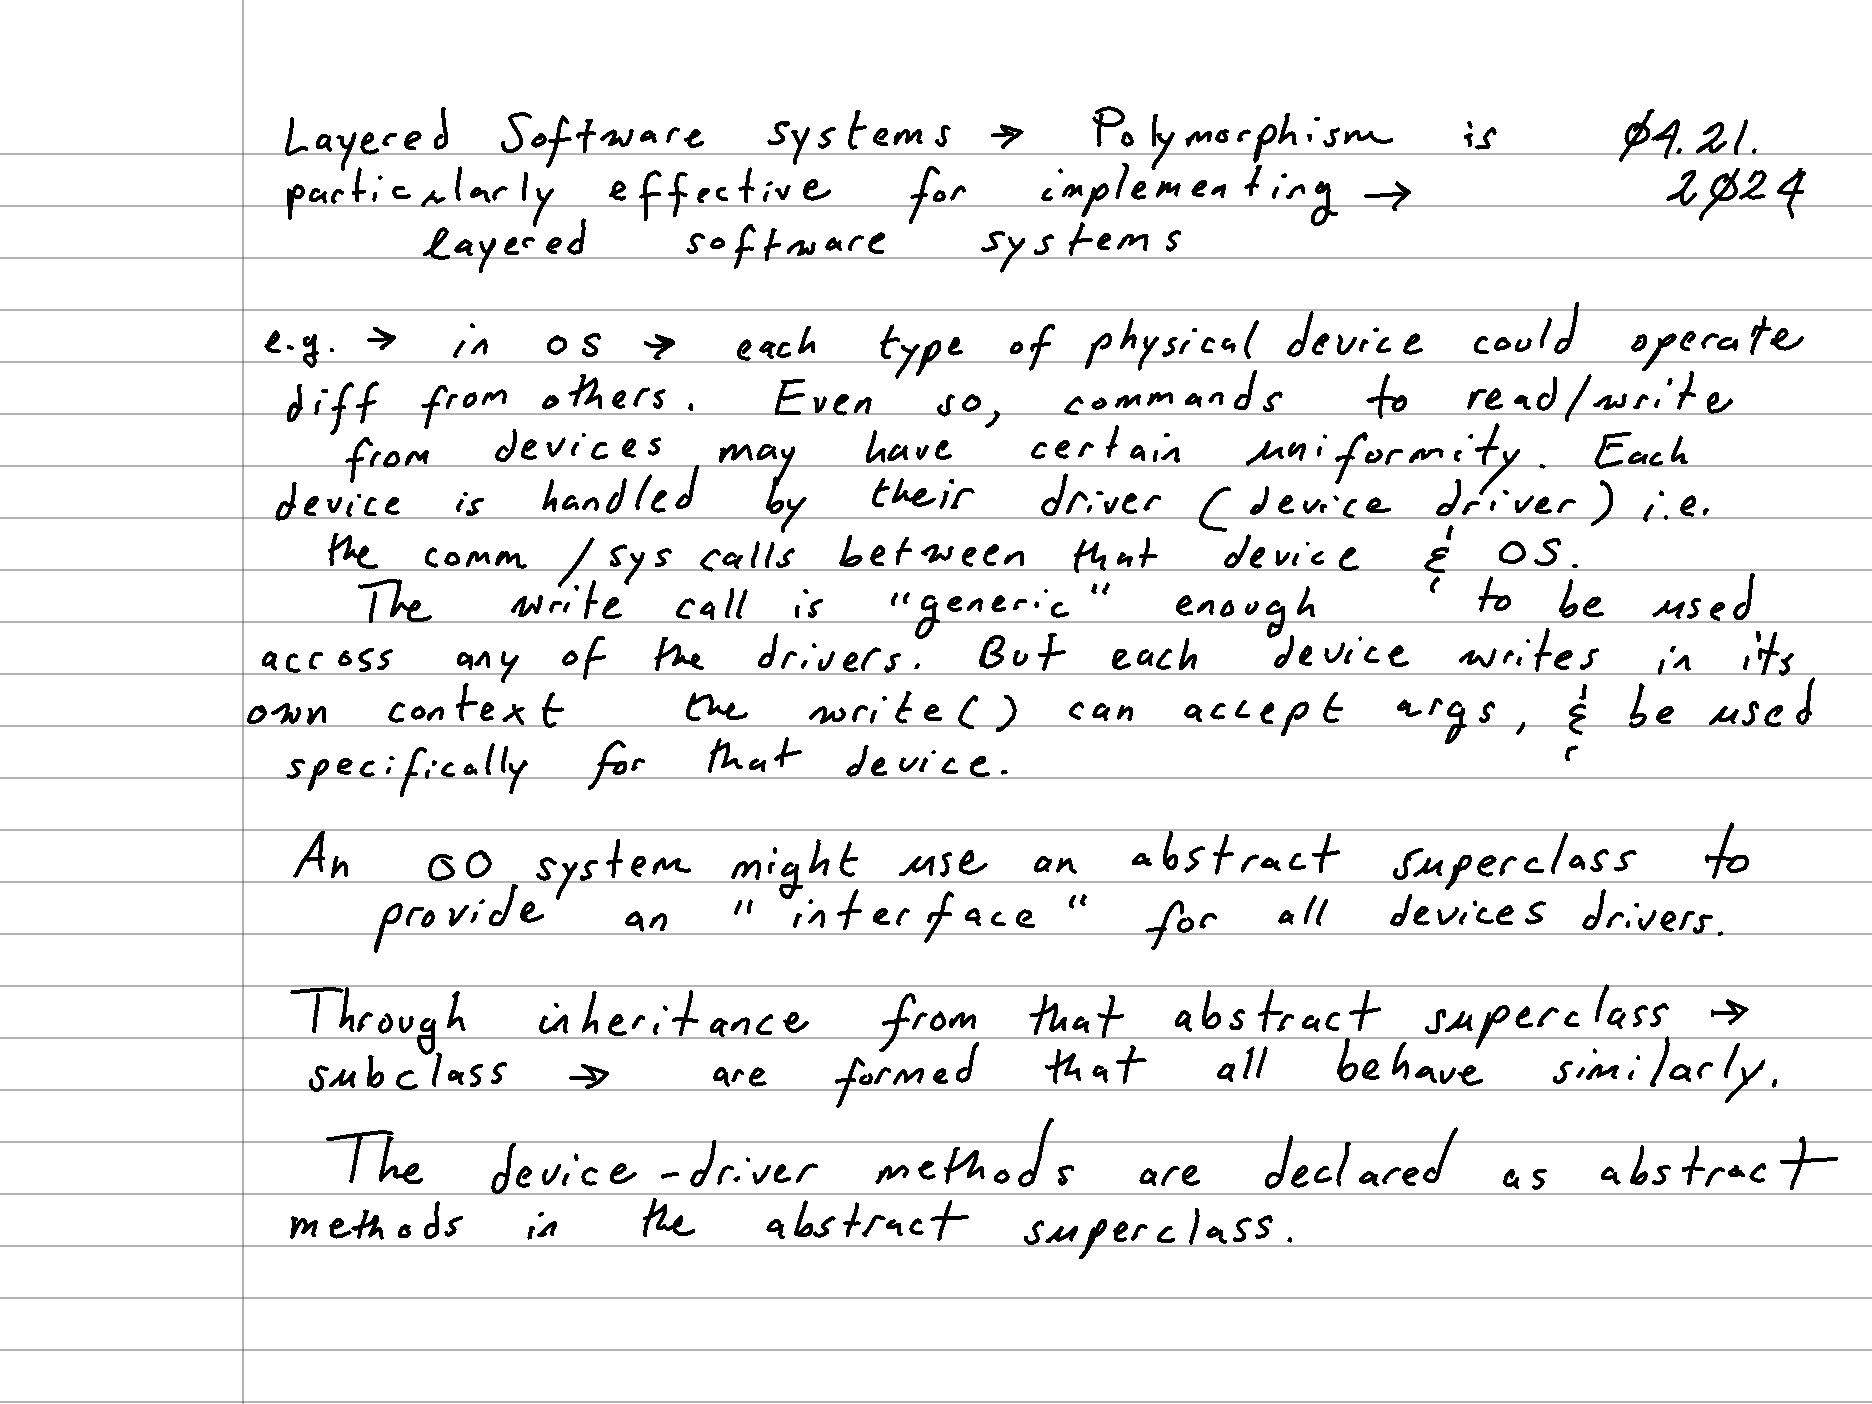 Layered Software systems → Polymorphism is Ø4.21.
particularly effective for implementing → 2Ø24
layered software systems
e.g. → in OS → each type of physical device could operate
diff from others. Even so, commands to read/write
from devices may have certain uniformity. Each
device is handled by their driver (device driver) i.e.
the comm /sys calls between that device & OS.
The write call is "generic" enough to be used
across any of the drivers. But each device writes in its
own context the write() can accept args, & be used
specifically for that device.
An OO system might use an abstract superclass to
provide an "interface" for all devices drivers.
Through inheritance from that abstract superclass →
subclass → are formed that all behave similarly.
The device-driver methods are declared as abstract
methods in the abstract superclass.